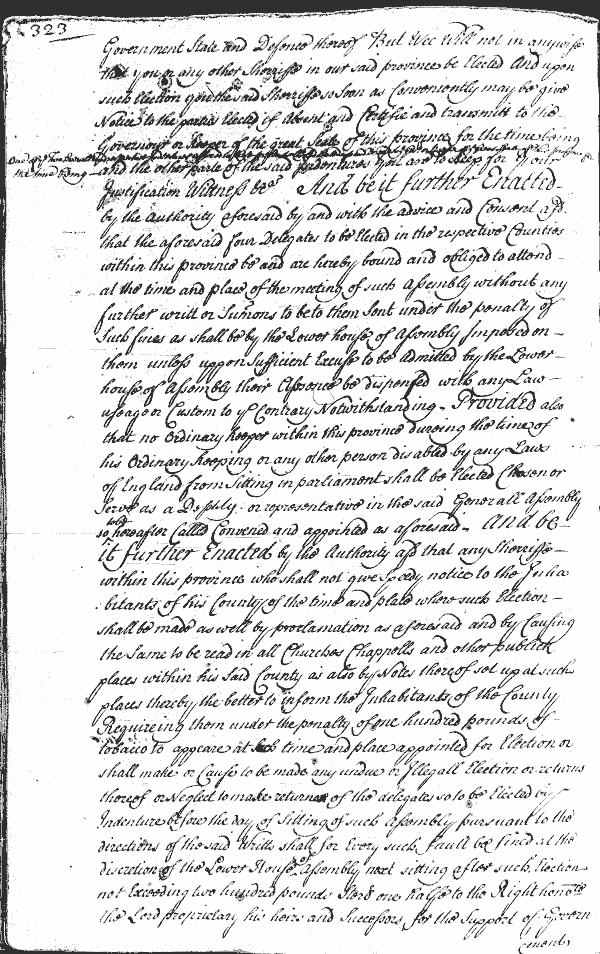 323
Government State and Defence thereof But Wee Will not in anywise
that you or any other Sherriffe in our said province be Elected And upon
such Election you the said Sherriffe so soon as Conveniently may be give
Notice to the parties Elected if Absent and Certifie and transmitt to the
Governour or Keeper of the great Seale of this province for the time being
the time being
and the other parte of the said Indentures you are to keep for Your
Justification Witness &ca And be it further Enacted
by the Authority aforesaid by and with the advice and Consent afsd
that the aforesaid four Delegates to be Elected in the respective Counties
within this province be and are hereby bound and obliged to attend
at the time and place of the meeting of such Assembly without any
further writt or Sumons to be to them Sent under the penalty of
Such fines as shall be by the Lower house of Assembly Imposed on
them unless uppon Sufficient Excuse to be Admitted by the Lower
house of Assembly their Absence be dispensed with any Law
useage or Custom to ye Contrary Notwithstanding Provided also
that no Ordinary keeper within this province dureing the time of
his Ordinary keeping or any other person disabled by any Laws
of England from Sitting in parliament shall be Elected Chosen or
Serve as a Deputy or representative in the said Generall Assembly
to be
so hereafter Called Convened and appointed as aforesaid And be
it further Enacted by the Authority afsd that any Sherriffe
within this province who shall not give Speedy notice to the Inha
bitants of his County of the time and place where such Election
shall be made as well by proclamation as aforesaid and by Causing
the Same to be read in all Churches Chappells and other publick
places within his Said County as also by Notes thereof set up at such
places thereby the better to inform the Inhabitants of the County
Requireing them under the penalty of one hundred pounds of
tobacco to appeare at such time and place appointed for Election or
shall make or Cause to be made any undue or Illegall Election or returns
thereof or Neglect to make returne of the delegates so to be Elected by
Indenture before the day of Sitting of such Assembly pursuant to the
directions of the said Writts shall for Every such fault be fined at the
discretion of the Lower House of Assembly next sitting after such Election
not Exceeding two hundred pounds Sterl one halfe to the Right honoble
the Lord proprietary his heirs and Successors for the Support of Govern
ment